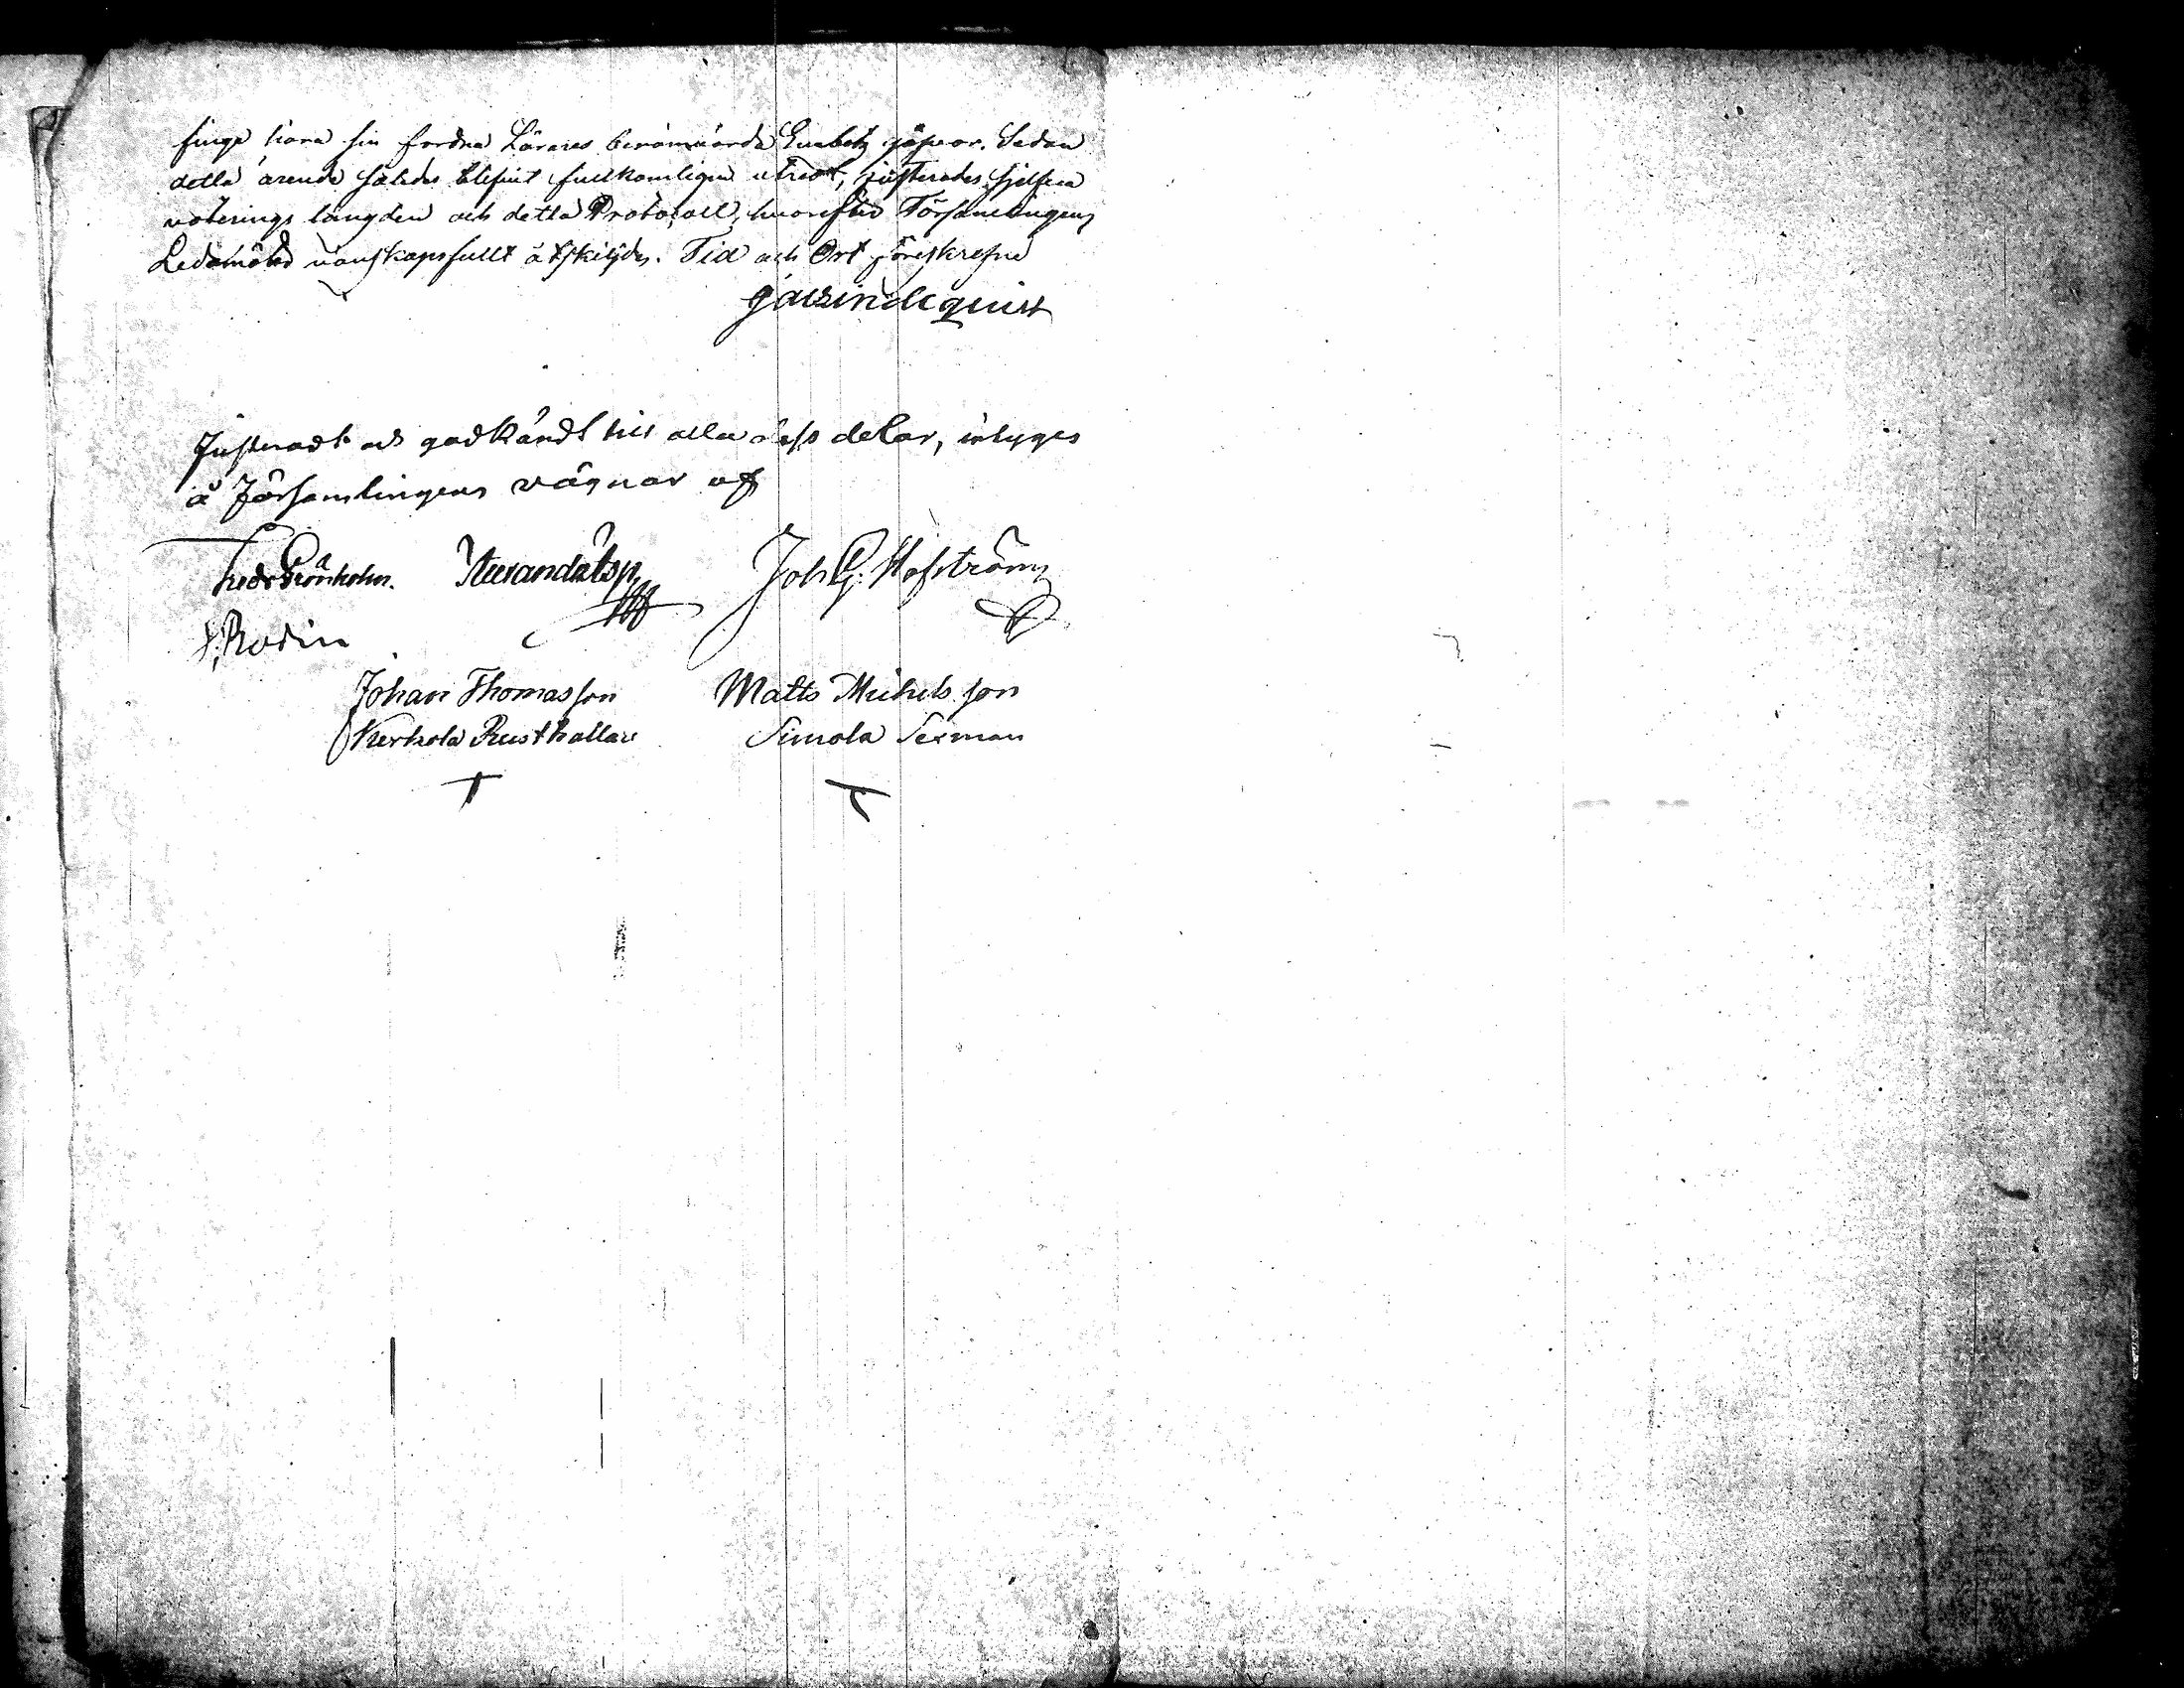 finge höra sin fordna Lärares berömvärda Enabetz gåfvor. Sedan
detta ärende således blefvit fullkomligen utredt, justerades sjelfva
voterings längden och detta Protocoll, hvarefter Församlingens
Ledamöter vänskapsfullt åtskiljdes. Tid och Ort föreskrefne
Justeradt och godkändt till alla dess delar, intyges
å Församlingens vägnar af
Fredr Grönholm. Joh G. Hofström
Rodin
Johan Thomasson Matts Michelsson
Kerkola Rusthållare Simola Sexman